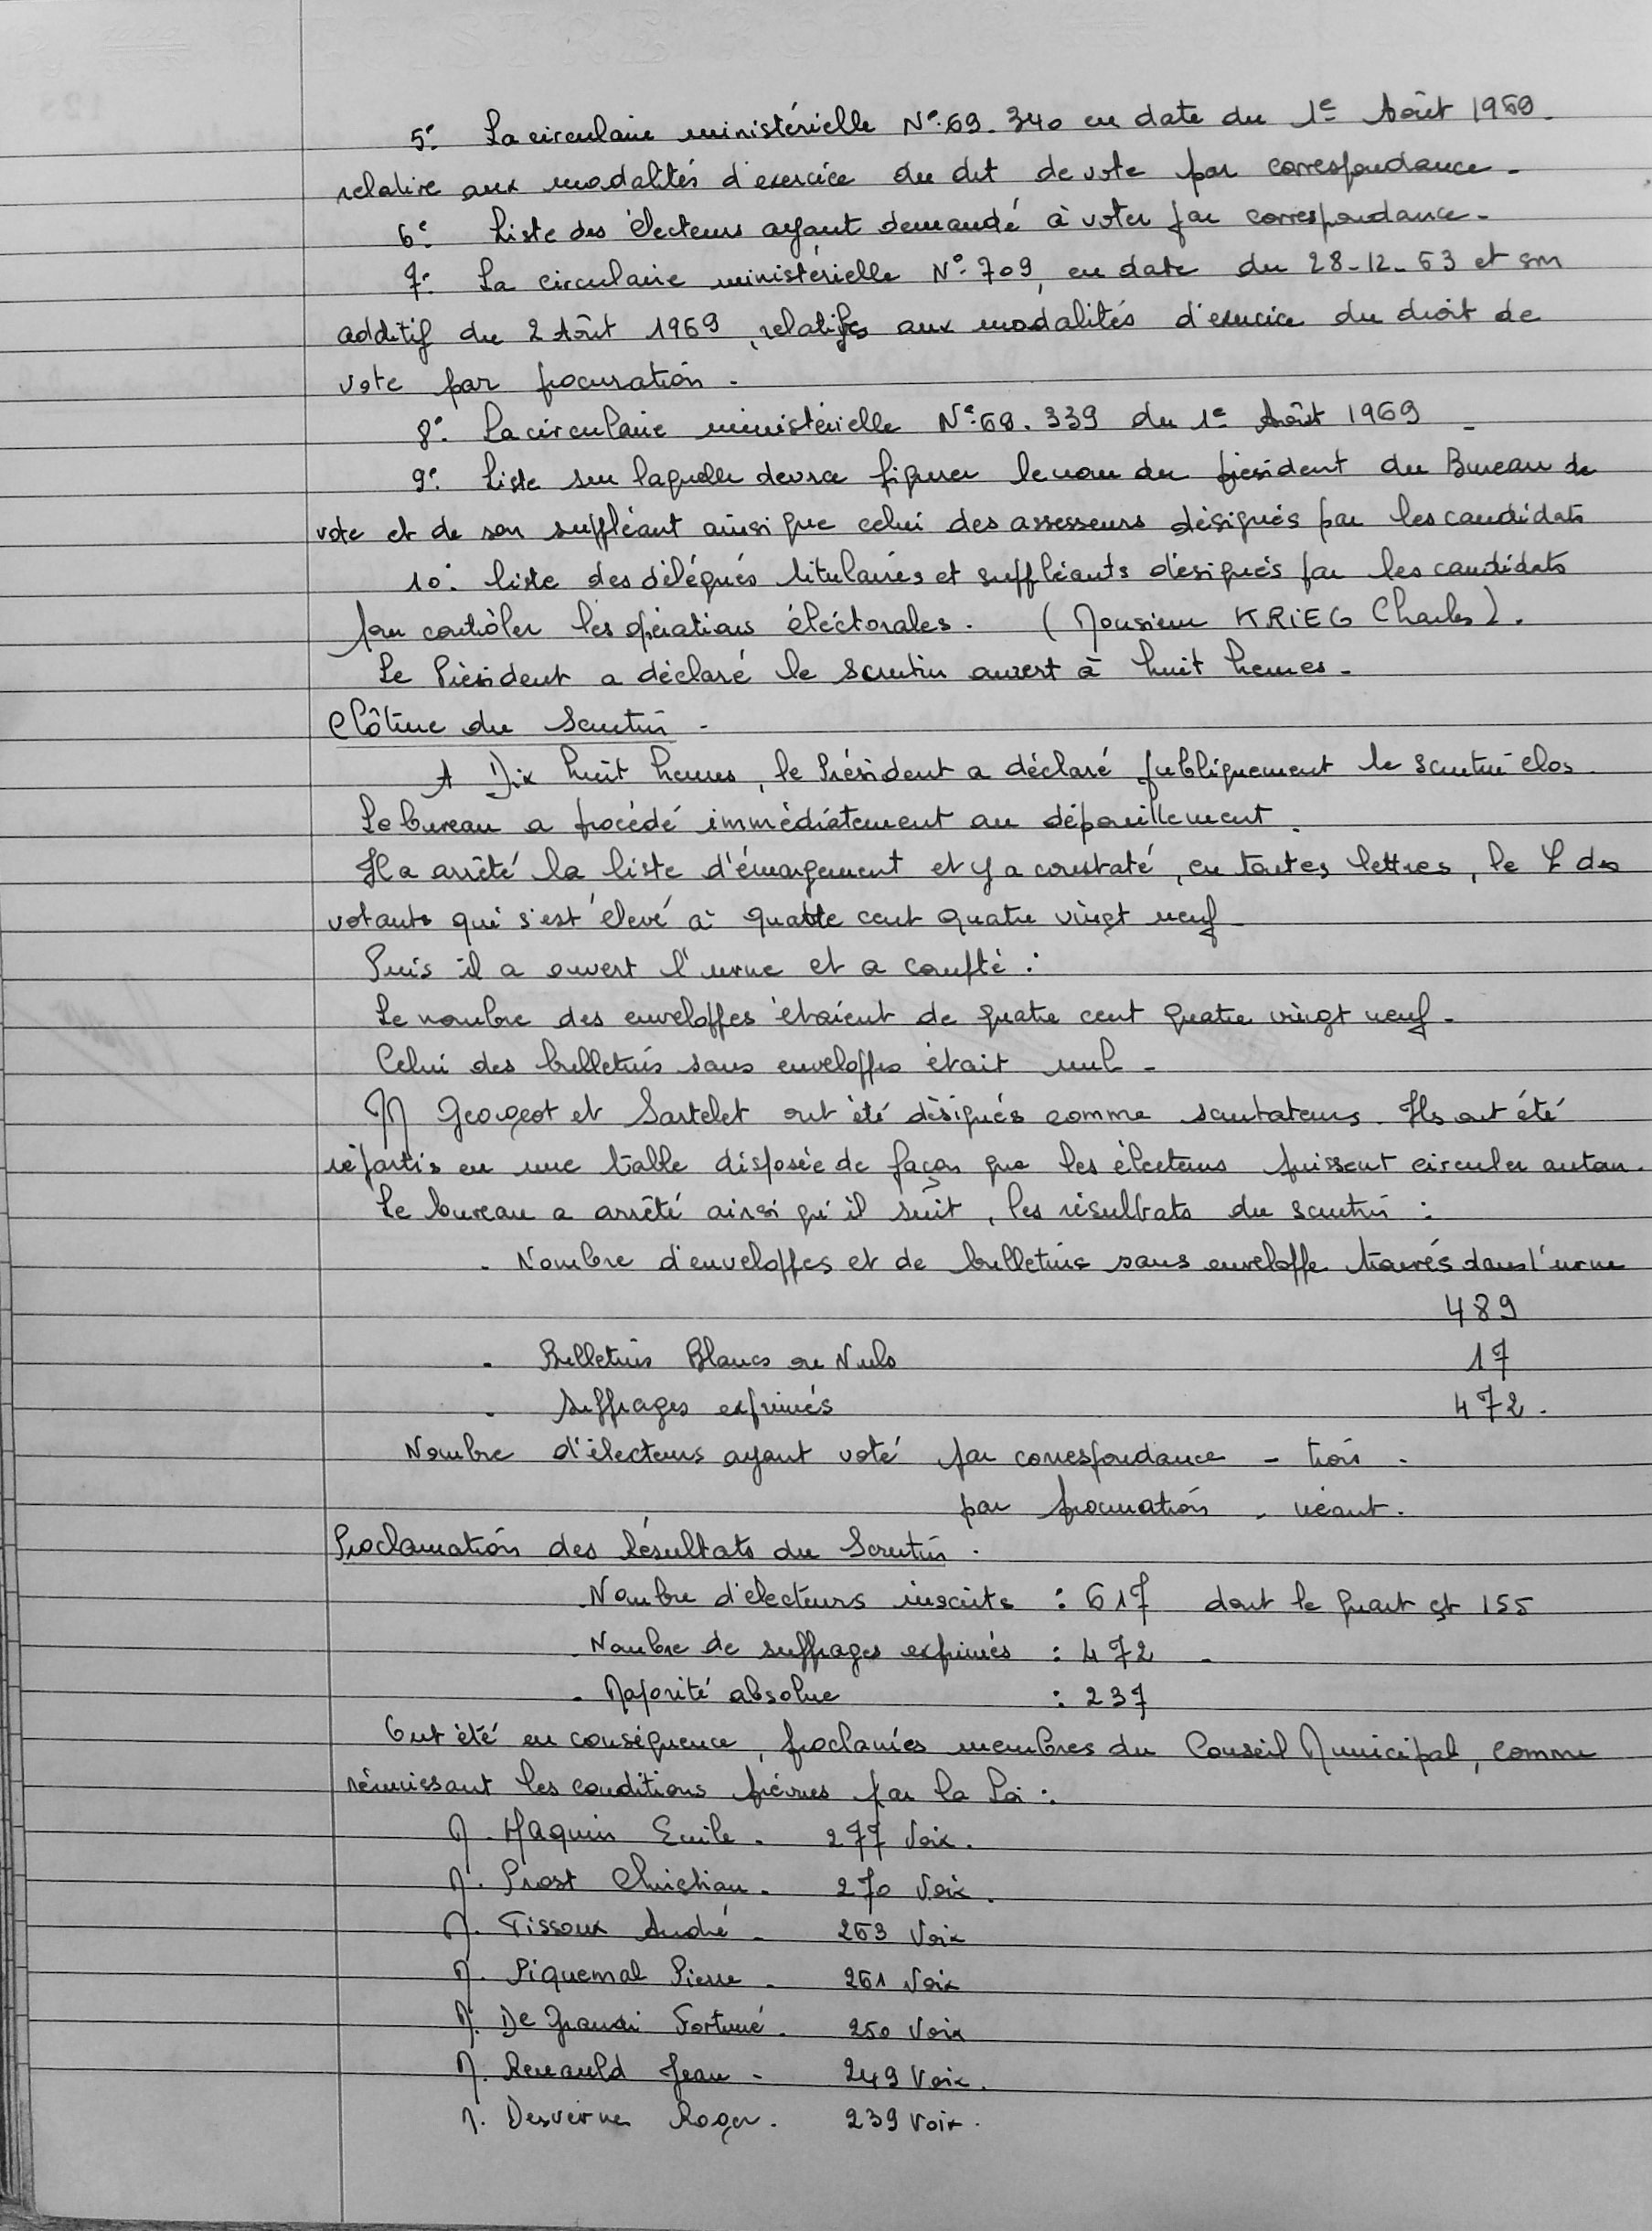 5°. La circulaire ministérielle N°. 69. 340 en date du 1e Août 1969.
relative aux modalités d'exercice du dt de vote par correspondance.
6°. Liste des électeurs ayant demandé à voter par correspondance.
7°. La circulaire ministérielle N°. 709, en date du 28-12-63 et son
additif du 2 Août 1969, relatifs aux modalités d'exercice du droit de
vote par procuration.
8°. La circulaire ministérielle N°. 69. 339 du 1e Août 1969.
9°. Liste sur laquelle devra figurer le nom du président du Bureau de
vote et de son suppléant ainsi que celui des assesseurs désignés par les candidats
10°. liste des délégués titulaires et suppléants désignés par les candidats
pour contrôler les opérations éléctorales. (Monsieur KRIEG Charles).
Le Président a déclaré le scrutin ouvert à huit heures.
Clôture du Scrutin.
A Dix huit heures, le Président a déclaré publiquement le scrutin clos.
Le bureau a procédé immédiatement au dépouillement.
Il a arrêté la liste d'émargement et y a constaté, en toutes lettres, le des
votants qui s'est élevé à quatre cent quatre vingt neuf
Puis il a ouvert l'urne et a compté :
Le nombre des enveloppes étaient de quatre cent quatre vingt neuf.
Celui des bulletins sans enveloppes était nul.
M Georgeot et Sartelet ont été désignés comme scrutateurs. Ils ont été
répartis en une table disposée de façon que les électeurs puissent circuler autour.
Le bureau a arrêté ainsi qu'il suit, les résultats du scrutin :
. Nombre d'enveloppes et de bulletins sans enveloppe trouvés dans l'urne
489
. Bulletins Blancs ou Nuls 17
. Suffrages exprimés 472.
Nombre d'électeurs ayant voté par correspondance - trois.
par procuration. néant.
Proclamation des Résultats du Scrutin.
. Nombre d'électeurs inscrits : 617 dont le quart est 155
. Nombre de suffrages exprimés : 472.
. Majorité absolue : 237
Ont été en conséquence, proclamés membres du Conseil Municipal, comme
réunissant les conditions prévues par la Loi :
M. Haquin Emile. 277 Voix.
M. Prost Christian. 270 Voix.
M. Tissoux André. 263 Voix
M. Piquemal Pierre. 261 Voix
M. De Grandi Fortuné. 250 Voix
M. Renauld Jean - 249 Voix.
M. Desverne Roger. 239 Voix.